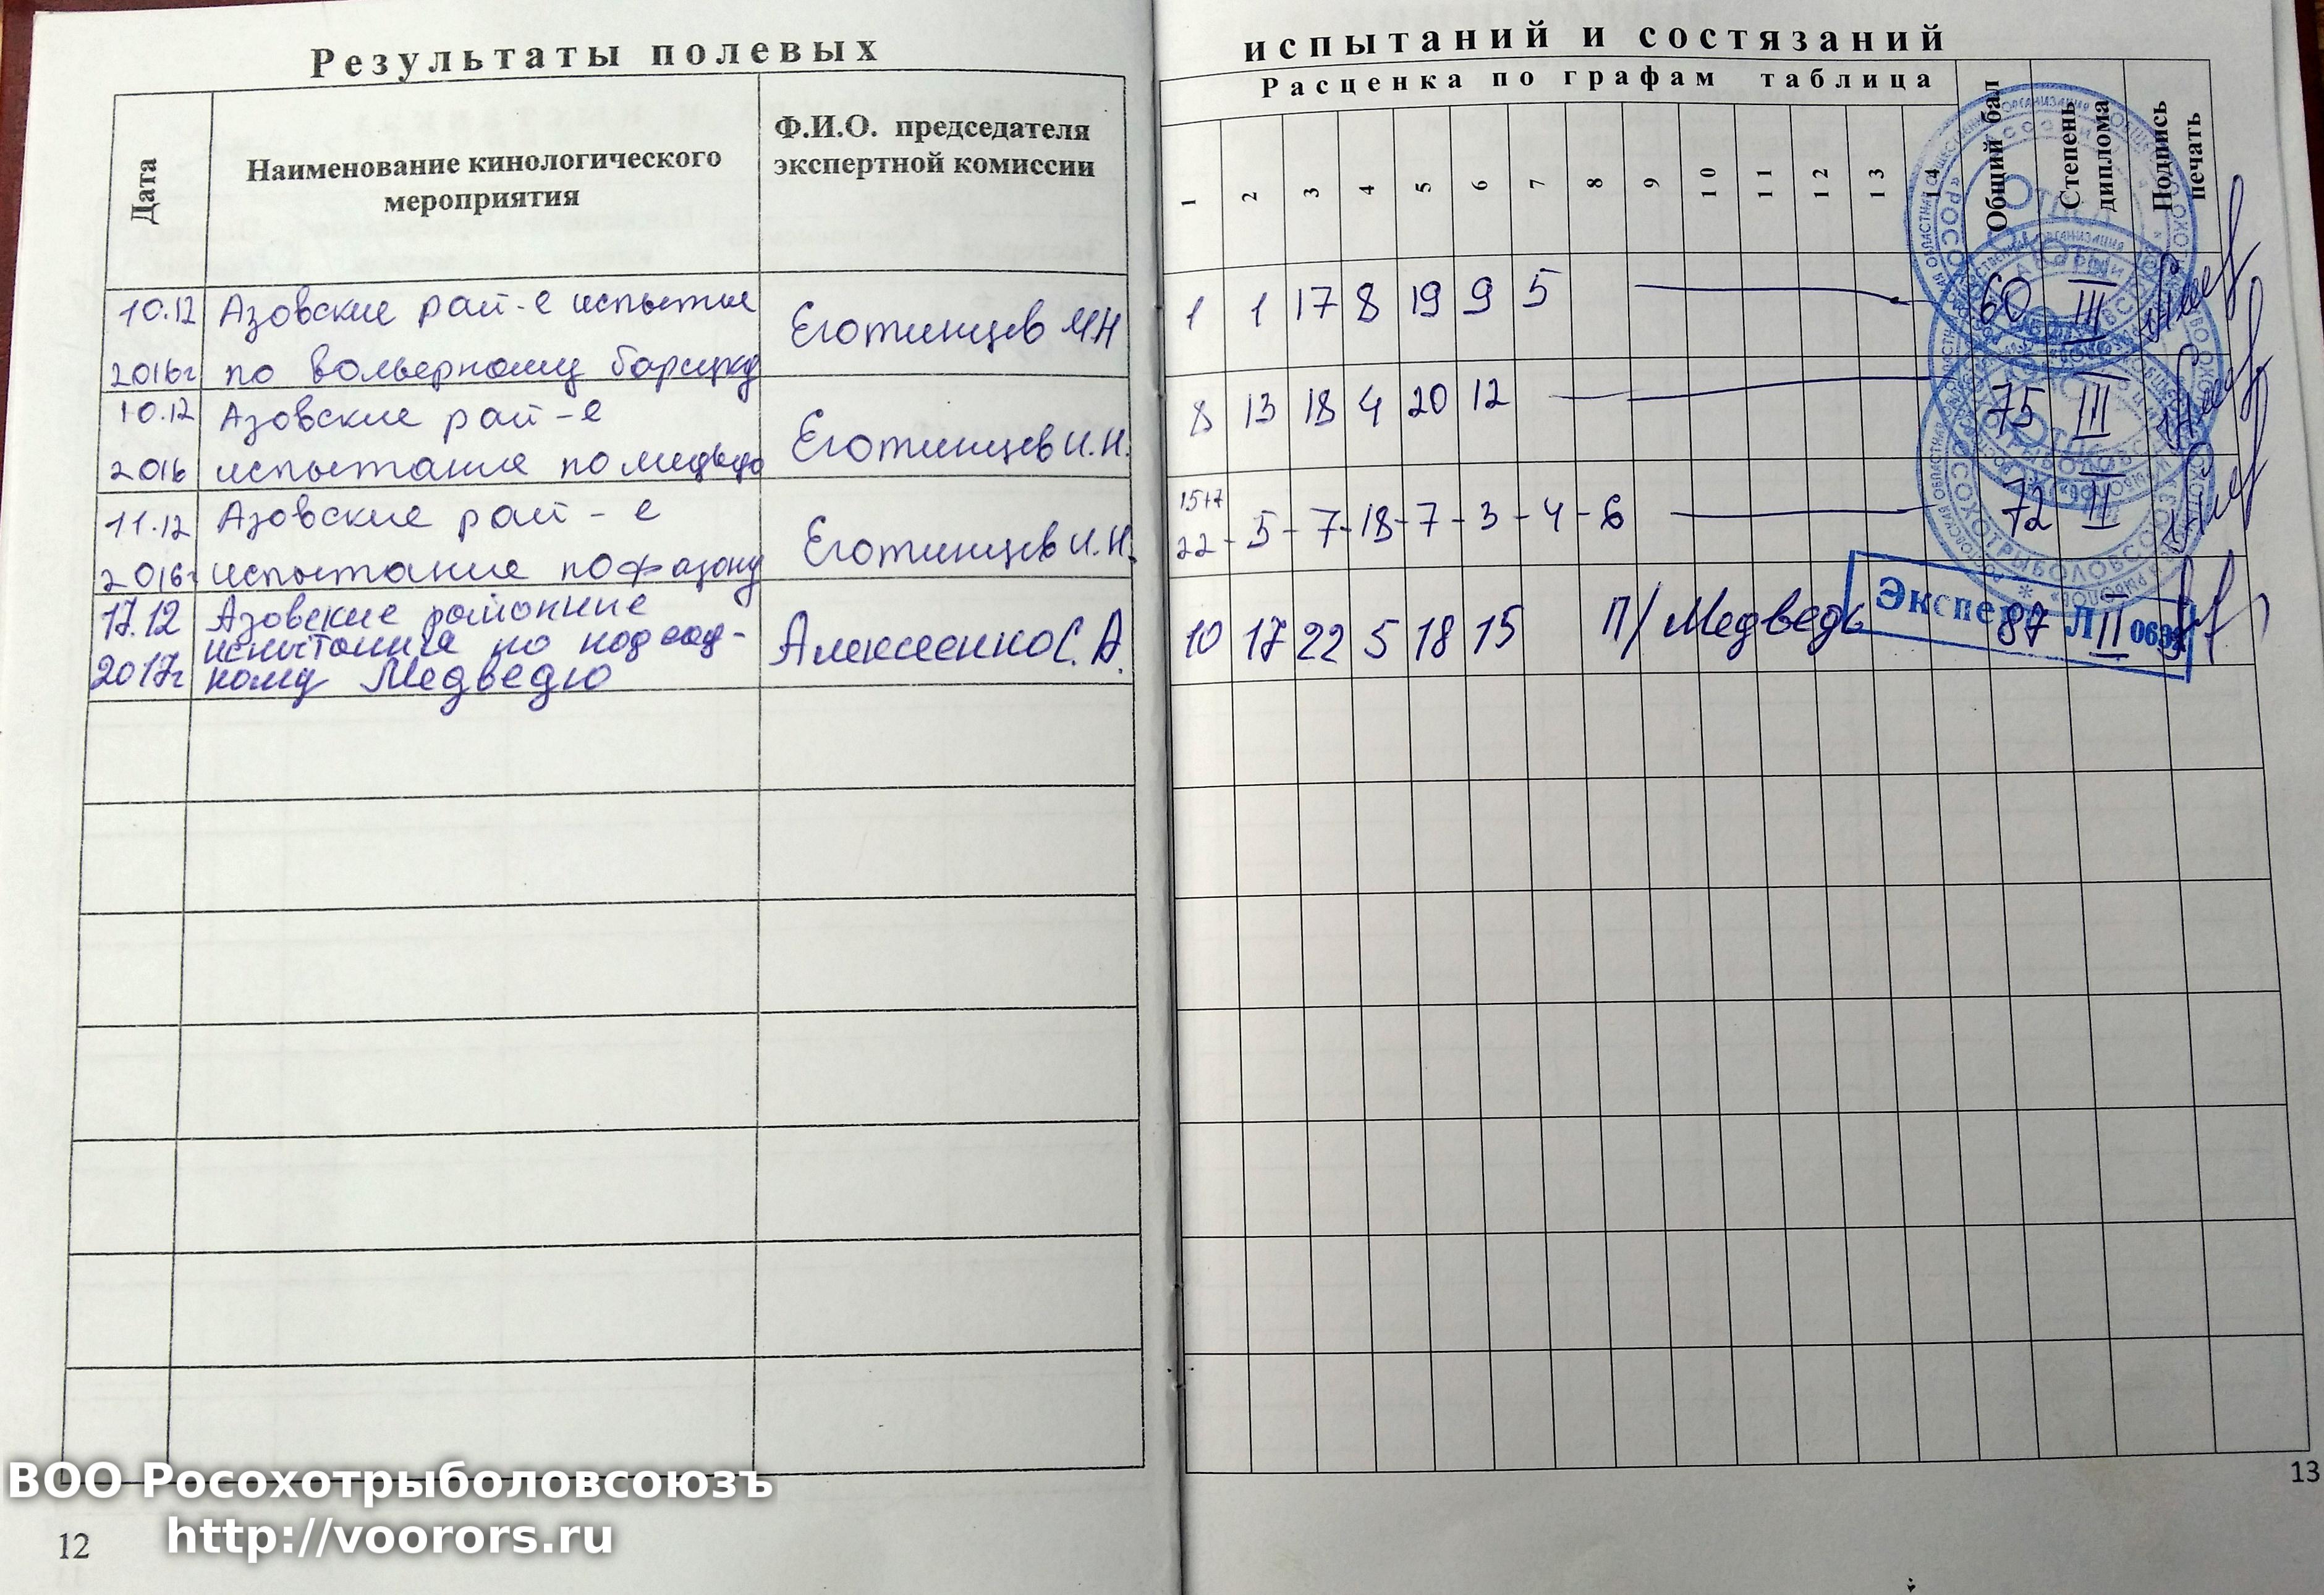 Результаты полевых
испытаний и состязаний
Дата
Наименование кинологического
мероприятия
Ф.И.О. председателя
экспертной комиссии
Расценка по графам таблица
1 2 3 4 5 6 7 8 9 10 11 12 13 14
Общий бал
Степень
диплома
Подпись
печать
10.12 Азовские рай-е испытые
2016г по вольерному барсуку
Еготинцев И.Н
1 1 17 8 19 9 5 60 III
10.12 Азовские рай-е
2016 испытание по медведю
Еготинцев И.Н.
8 13 18 4 20 12 75 III
11.12 Азовские рай-е
2016г испытание по фазану
Еготинцев И.Н.
15+7
22 - 5 - 7 - 18 - 7 - 3 - 4 - 6 72 II
17.12 Азовские районные
испытания по подсад-
2017г ному Медведю
Алексеенко С.А.
10 17 22 5 18 15 П/Медведь 87 II
Эксперт
ВОО Росохотрыболовсоюзъ
http://voorors.ru
12
13